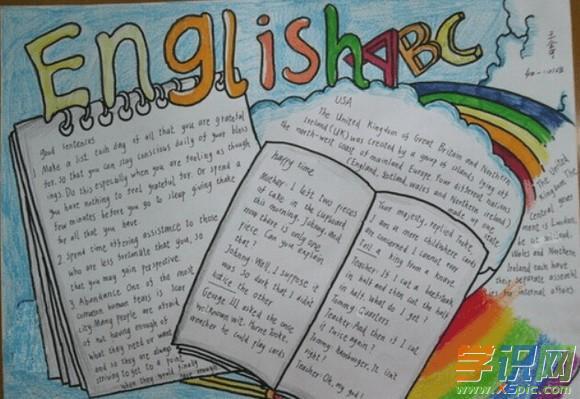 English ABC
good sentences
1. Make a list each day of all that you are grateful
for, so that you can stay conscious daily of your bless
ings. Do this especially when you are feeling as though
you have nothing to feel grateful for. Or spend a
few minutes before you go to sleep giving thanks
for all that you have
2. Spend time offering assistance to those
who are less fortunate than you, so
that you may gain perspective.
3. Abundance One of the most
common human fears is scar
city. Many people are afraid
of not having enough of
what they need or want,
and so they are always
striving to get to a point
when they would finally
USA
The United Kingdom of Great Britain and Northern
Ireland (UK) was created by a group of islands lying off
the north-west coast of mainland Europe. Four different nations
(England, Scotland, Wales and Northern Ireland)
made up one
state
Happy time
Mother: I left two pieces
of cake in the cupboard
this morning, Johnny, and
now there is only one
piece. Can you explain
that?
Johnny: Well, I suppose it
was so dark that I didn't
notice the other
George III asked the once
wellknown wit, Horne Tooke,
wheather he could play cards
Your majesty, replied Tooke,
I am a mere child where cards
are concerned. I cannot even
tell a king from a knave
Teacher: If I cut a beefsteak
in half and then cut the half
in half, what do I get?
Tommy: Quarters
Teacher: And then if I cut
it twice again?
Tommy: hamburger, It isn't
right?
Teacher: Oh, my god!
The United
Kingdom The
Central
ment is London,
Wales and
Northern
Ireland each have
their separate
for internal affairs.
学识网
www.xspic.com